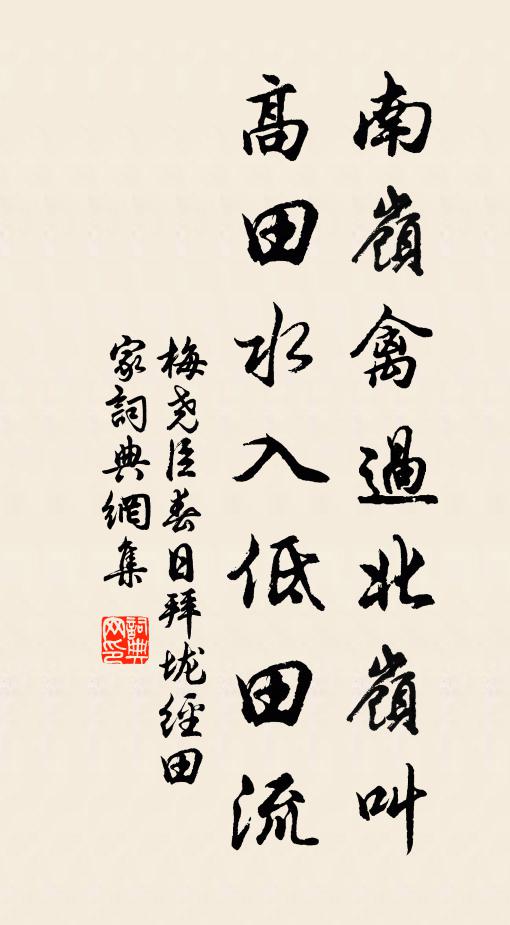 南嶺禽過北嶺叫
高田水入低田流
梅尧臣春日拜垅經田
家詞典網集
詞典
网印